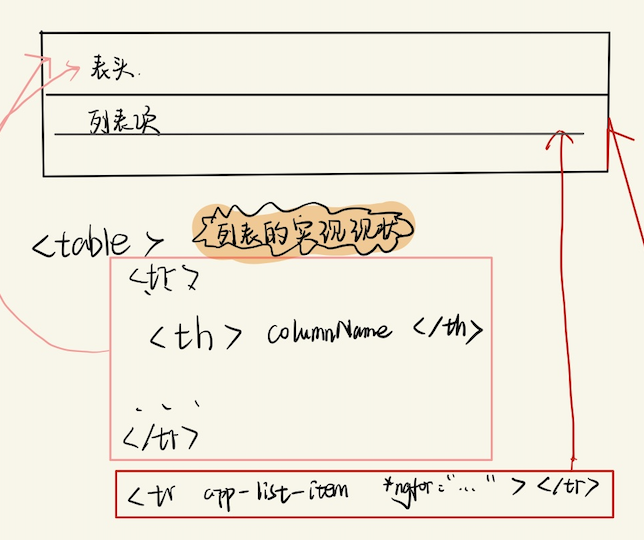 表头.
列表项
列表的实现现状
<table>
<tr>
<th> columnName </th>
. . .
</tr>
<tr app-list-item *ngfor="..." > </tr>